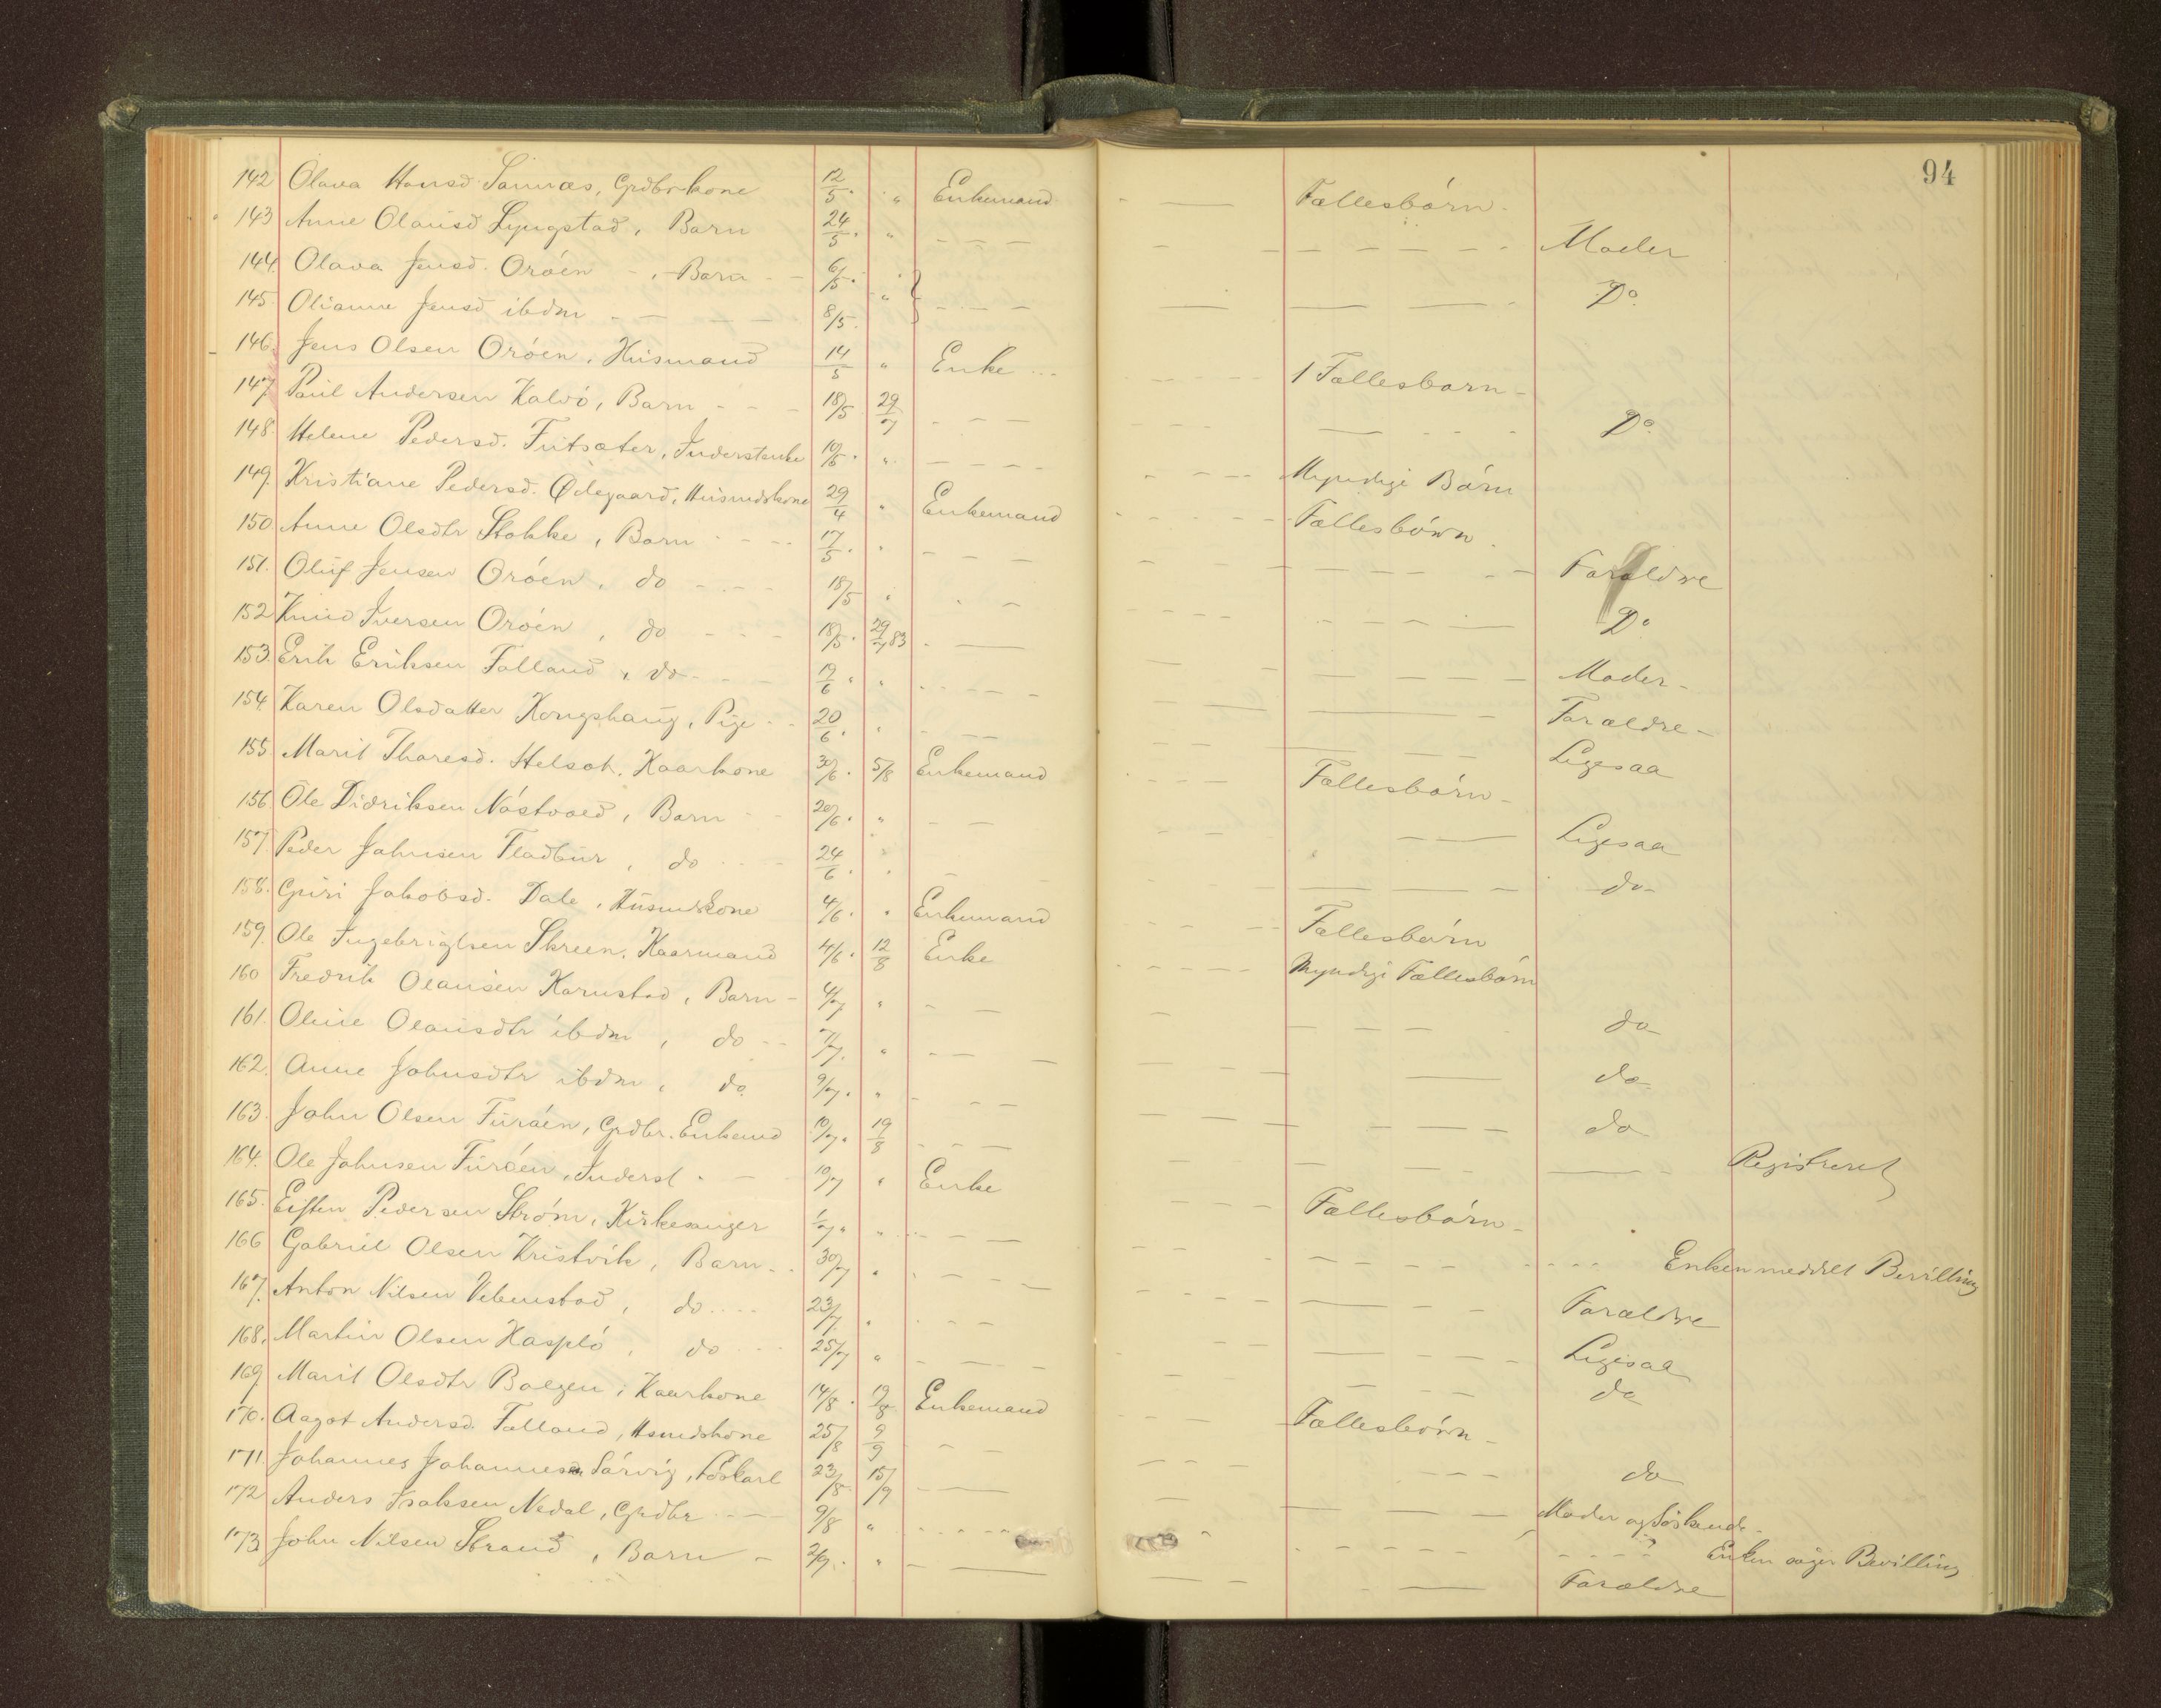 94
142 Olava Hansd. Sannæs, Grdbr.kone 12/5. " Enkemand Fællesbörn
143 Anne Olausd Lyngstad, Barn 24/5. " Moder
144. Olava Jensd. Oröen, Barn 6/5. " Do.
145. Olianne Jensd ibdm 8/5.
146. Jens Olsen Oröen, Husmand 14/5 " Enke 1 Fællesbarn
147. Paul Andersen Kalvö, Barn 18/5 29/7 Do.
148. Helene Pedersd. Futsæter, Inderstenke 10/5. " Myndige Börn
149. Kristiane Pedersd. Ödegaard, Husmdskone 29/4 " Enkemand Fællesbörn
150 Anne Olsdtr Stokke, Barn 17/5. " Forældre
151. Oluf Jensen Oröen, do 18/5 " Do
152 Knud Iversen Oröen, do 18/5. 29/7 83 Moder
153. Erik Eriksen Talland, do 19/6. " Forældre
154. Karen Olsdatter Kongshaug, Pige 20/6. " Ligesaa
155. Marit Tharesd. Helsæt, Kaarkone 30/6. 5/8 Enkemand Fællesbörn
156. Ole Didriksen Nåstvold, Barn 20/6. " Ligesaa
157. Peder Johnsen Fladbur, do 24/6. " do
158. Guri Jakobsd. Dale, Husmdskone 4/6. " Enkemand Fællesbörn
159. Ole Ingebrigtsen Skreen, Kaarmand 4/6. 12/8 Enke Myndige Fællesbörn
160 Fredrik Olausen Karustad, Barn 4/7 " do
161. Oline Olausdtr ibdm, do 7/7. " do
162. Anne Johnsdtr ibdm, do 9/7. " do
163. John Olsen Furöen, Grdbr. Enkemd 10/7. 19/8 Registreret
164. Ole Johnsen Furöen, Inderst 10/7 " Enke Fællesbörn
165. Eisten Pedersen Ström, Kirkesanger 1/7. " Enken meddelt Bevilling
166 Gabriel Olsen Kristvik, Barn 30/7 " Forældre
167. Anton Nilsen Vebenstad, do 23/7. " Ligesaa
168. Martin Olsen Hasplö, do 25/7 " do
169. Marit Olsdtr Bolgen, Kaarkone 14/8. 19/8 Enkemand Fællesbörn
170. Aagot Andersd. Talland, Hsmdskone 25/8 9/9 do
171. Johannes Johannesen Sörvig, Föskarl 23/8 15/9 Moder og Söskende
172 Anders Isaksen Nedal, Grdbr 9/8 " Enken söger Bevilling
173. John Nilsen Strand, Barn 2/9. " Forældre